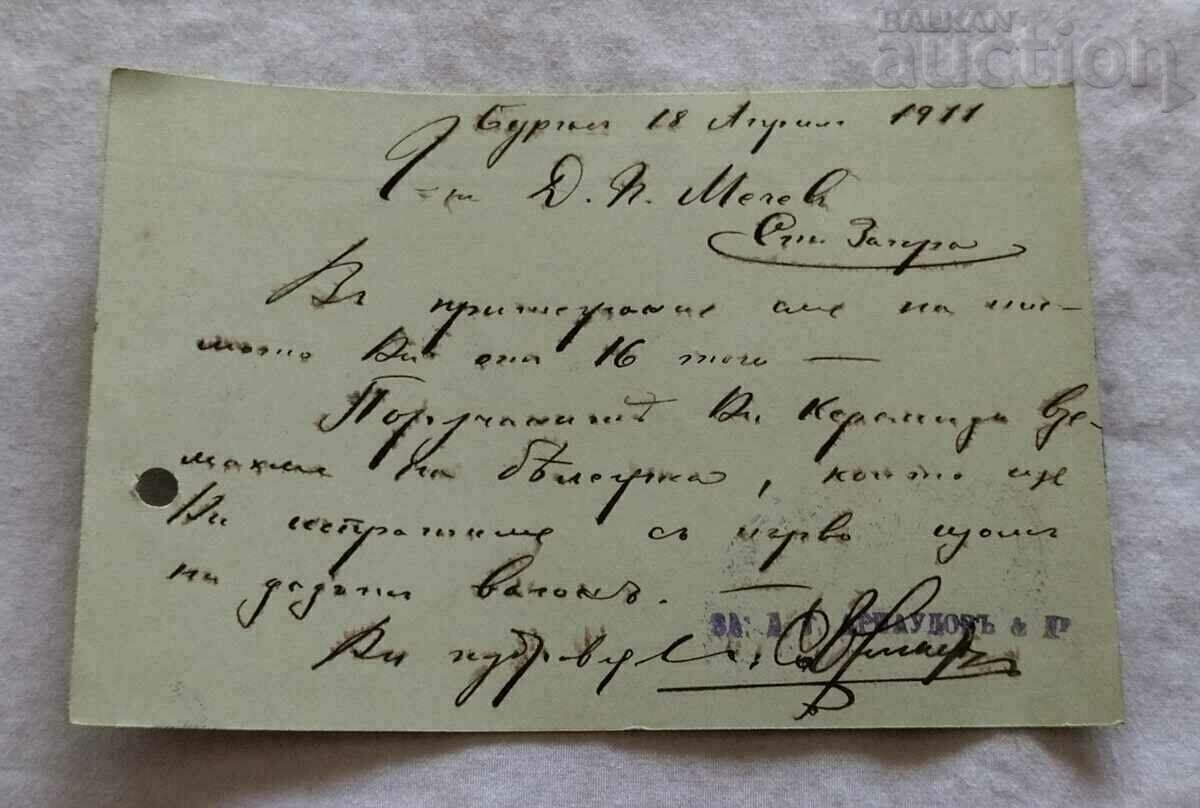 BALKAN
auction
Бургас 18 Април 1911
Г-н Д. П. Мечев
Ст. Загора
В притежание сме на пис-
мото Ви от 16 того —
Поръчанитѣ Ви Керемиди взе-
махме на бѣлежка, които ще
Ви изпратиме съ първо щом
ни дадат вагонъ. —
Ви поздрав
ЗА: А. & Др